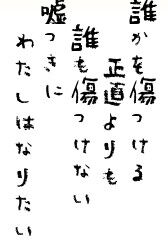 誰かを傷つける
正直よりも
誰も傷つけない
嘘つきに
わたしはなりたい